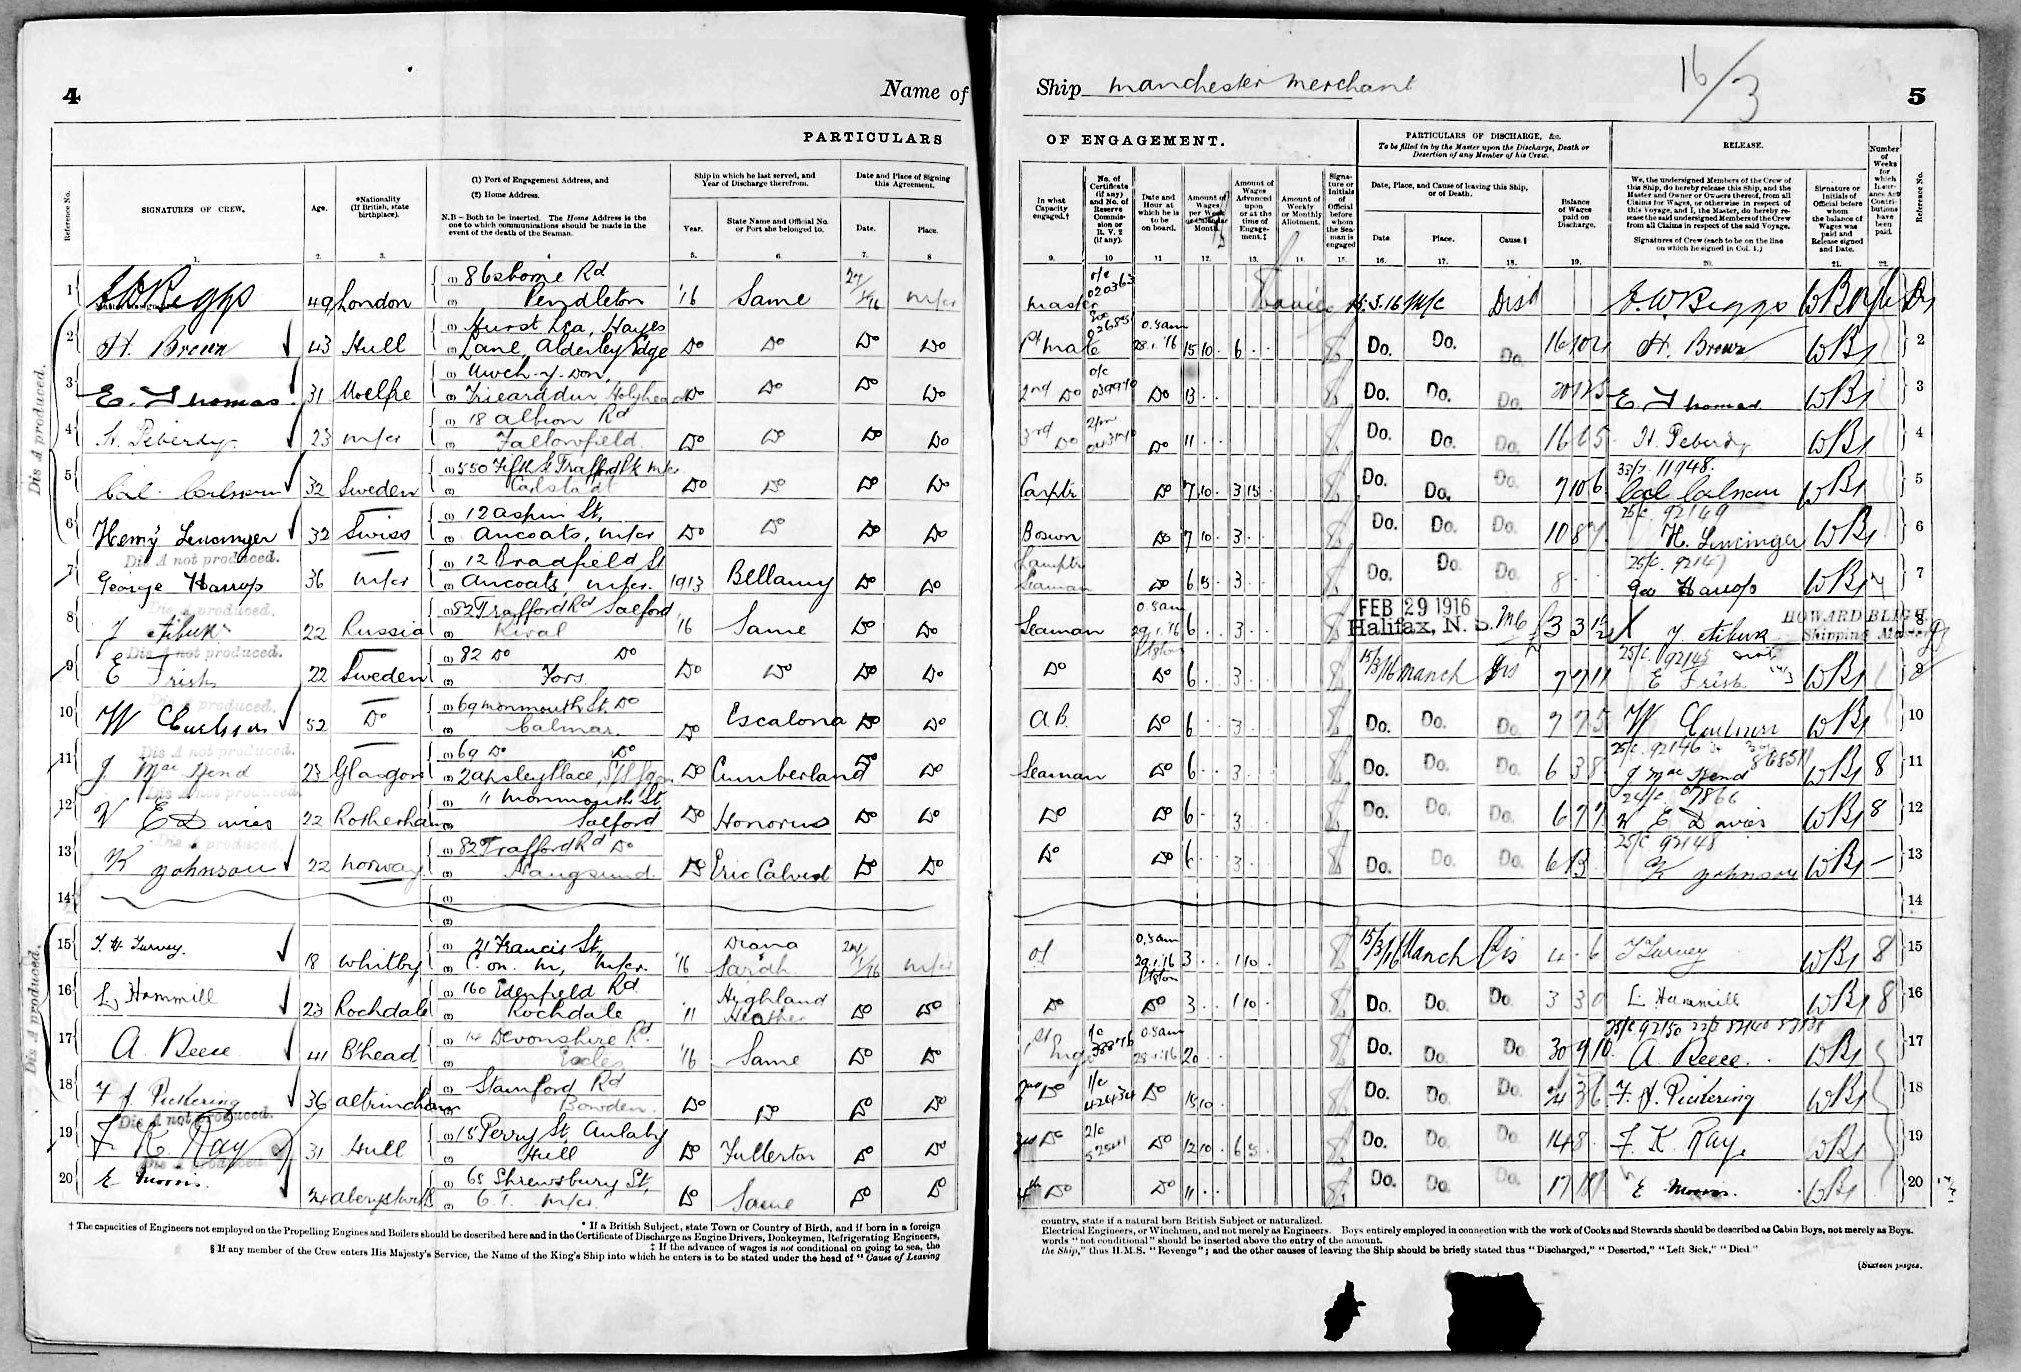 4
Name of
PARTICULARS
Reference No.
SIGNATURES OF CREW.
Age.
*Nationality
(If British, state
birthplace).
(1) Port of Engagement Address, and
(2) Home Address.
N.B – Both to be inserted. The Home Address is the
one to which communications should be made in the
event of the death of the Seaman.
Ship in which he last served, and
Year of Discharge therefrom.
Year.
State Name and Official No.
or Port she belonged to.
Date and Place of Signing
this Agreement.
Date.
Place.
1. 2. 3. 4 5. 6. 7. 8
1 49 London (1) 8 Osborne Rd
(2) Pendleton '16 Same M/cr
Dis A produced.
2 H. Brown 43 Hull (1) Hurst Lea, Hayes
(2) Lane, Alderley Edge Do Do Do Do
3 E. Thomas 31 Moelfre (1)
(2) Trearddur, Holyhead Do Do Do Do
4 H. Peberdy 23 M/cr (1) 18 Albion Rd
(2) Fallowfield Do Do Do Do
5 32 Sweden (1) 550 Fifth St Trafford Pk M/cr
(2) Carlstadt Do Do Do Do
6 Henry 32 Swiss (1) 12 Aspin St,
(2) Ancoats, M/cr Do Do Do Do
Dis A not produced.
7 George Harrop 36 M/cr (1) 12 Bradfield St
(2) Ancoats, M/cr. 1913 Bellamy Do Do
Dis A produced.
8 22 Russia (1) 82 Trafford Rd Salford
(2) '16 Same Do Do
Dis A not produced.
9 E Frish 22 Sweden (1) 82 Do Do
(2) Fors. Do Do Do Do
10 W Carlsson 52 Do (1) 69 Monmouth St. Do
(2) Calmar. Do Escalona Do Do
Dis A not produced.
11 J 23 Glasgow (1) 69 Do Do
(2) 2 Apsley Place, Do Cumberland Do Do
Dis A not produced.
12 W E Davies 22 Rotherham (1) 11 Monmouth St
(2) Salford Do Honorius Do Do
Dis A produced.
13 K Johnson 22 Norway (1) 82 Trafford Rd Do
(2) Haugsund Do Eric Calvert Do Do
14 (1)
(2)
Dis A produced.
15 18 Whitby (1) 21 Francis St,
(2) C. on. M, M/cr. '16 Diana
Sarah M/cr
16 L Hammill 23 Rochdale (1) 160 Edenfield Rd.
(2) Rochdale " Highland
Heather Do Do
17 A. Reece 41 B'head (1) 14 Devonshire Rd.
(2) Eccles '16 Same Do Do
18 F. J. Pickering 36 Altrincham (1) Stamford Rd
(2) Bowdon. Do Do Do Do
Dis A not produced.
19 F. K. Ray 31 Hull (1) 15 Perry St, Anlaby
(2) Hull Do Fullerton Do Do
Dis A produced.
20 E Morris. 24 Aberystwith (1) 65 Shrewsbury St,
(2) C.T. M/cr. Do Same Do Do
† The capacities of Engineers not employed on the Propelling Engines and Boilers should be described here and in the Certificate of Discharge as Engine Drivers, Donkeymen, Refrigerating Engineers,
* If a British Subject, state Town or Country of Birth, and if born in a foreign
‡ If the advance of wages is not conditional on going to sea, the
§ If any member of the Crew enters His Majesty's Service, the Name of the King's Ship into which he enters is to be stated under the head of "Cause of Leaving
Ship Manchester Merchant
16/3
5
OF ENGAGEMENT.
PARTICULARS OF DISCHARGE, &c.
To be filled in by the Master upon the Discharge, Death or
Desertion of any Member of his Crew.
RELEASE.
In what
Capacity
engaged.†
No. of
Certificate
(if any)
and No. of
Reserve
Commis-
sion or
R. V. 2
(if any).
Date and
Hour at
which he is
to be
on board.
Amount of
Wages
per Week
or Calendar
Month.
Amount of
Wages
Advanced
upon
or at the
time of
Engage-
ment.‡
Amount of
Weekly
or Monthly
Allotment.
Signa-
ture or
Initials
of
Official
before
whom
the Sea-
man is
engaged
Date, Place, and Cause of leaving this Ship,
or of Death.
Date
Place.
Cause.§
Balance
of Wages
paid on
Discharge.
We, the undersigned Members of the Crew of
this Ship, do hereby release this Ship, and the
Master and Owner or Owners thereof, from all
Claims for Wages, or otherwise in respect of
this Voyage, and I, the Master, do hereby re-
lease the said undersigned Members of the Crew
from all Claims in respect of the said Voyage.
Signatures of Crew (each to be on the line
on which he signed in Col. 1.)
Signature or
Initials of
Official before
whom
the balance of
Wages was
paid and
Release signed
and Date.
Number
of
Weeks
for
which
Insur-
ance Act
Contri-
butions
have
been
paid.
Reference No.
9. 10 11 12. 13. 14. 15. 16. 17. 18. 19. 20. 21. 22.
Master 020363 15.3.16 M/c Disd J. W. Beggs
1st Mate 0.5am 28.1.16 15 10. 6 Do. Do. Do. H. Brown 2
2nd Do Do 13 Do. Do. Do. E. Thomas 3
3rd Do Do 11 Do. Do. Do. 16 6 5 H. Peberdy 4
Carptr Do 7 10 3 15 Do. Do. Do. 7 10 6 11948. 5
Boswn Do 7 10 3 Do. Do. Do. 10 8 25/c. 92149 H. 6
Lamptr
Seaman Do 6 5 3 Do. Do. Do. 8 25/c. 92147 Geo Harrop 7
Seaman 0.5am 29.1.16 6 3 FEB 29 1916
Halifax, N. S. 3 3 HOWARD BLIGH
Shipping Master 8
Do Do 6 3 15/3/16 Manch Dis 7 7 11 25/c. 92145 E Frish 9
A.B. Do 6 3 Do. Do. Do. 7 7 5 W Carlsson 10
Seaman Do 6 3 Do. Do. Do. 6 3 8 25/c. 92146 8 11
Do Do 6 3 Do. Do. Do. 6 7 7 W E Davies 8 12
Do Do 6 3 Do. Do. Do. 25/c 92148 K Johnson — 13
14
0.5am 29.1.16 3 1 10 15/3/16 Manch Dis 4 . 6 8 15
Do Do 3 1 10 Do. Do. Do. 3 3 0 L Hammill 8 16
1st Engr 38876 0.5am 28.1.16 20 Do. Do. Do. 30 9 10 A Reece. 17
2nd Do 1/c 42434 Do 15 10 Do. Do. Do. 24 3 6 F. J. Pickering 18
3rd Do 2/c Do 12 10 6 5 Do. Do. Do. 14 8 F. K. Ray. 19
4th Do Do 11 Do. Do. Do. E Morris. 20
country, state if a natural born British Subject or naturalized.
Electrical Engineers, or Winchmen, and not merely as Engineers. Boys entirely employed in connection with the work of Cooks and Stewards should be described as Cabin Boys, not merely as Boys.
words "not conditional" should be inserted above the entry of the amount.
the Ship," thus H.M.S. "Revenge"; and the other causes of leaving the Ship should be briefly stated thus "Discharged," "Deserted," "Left Sick," "Died"
(Sixteen pages.